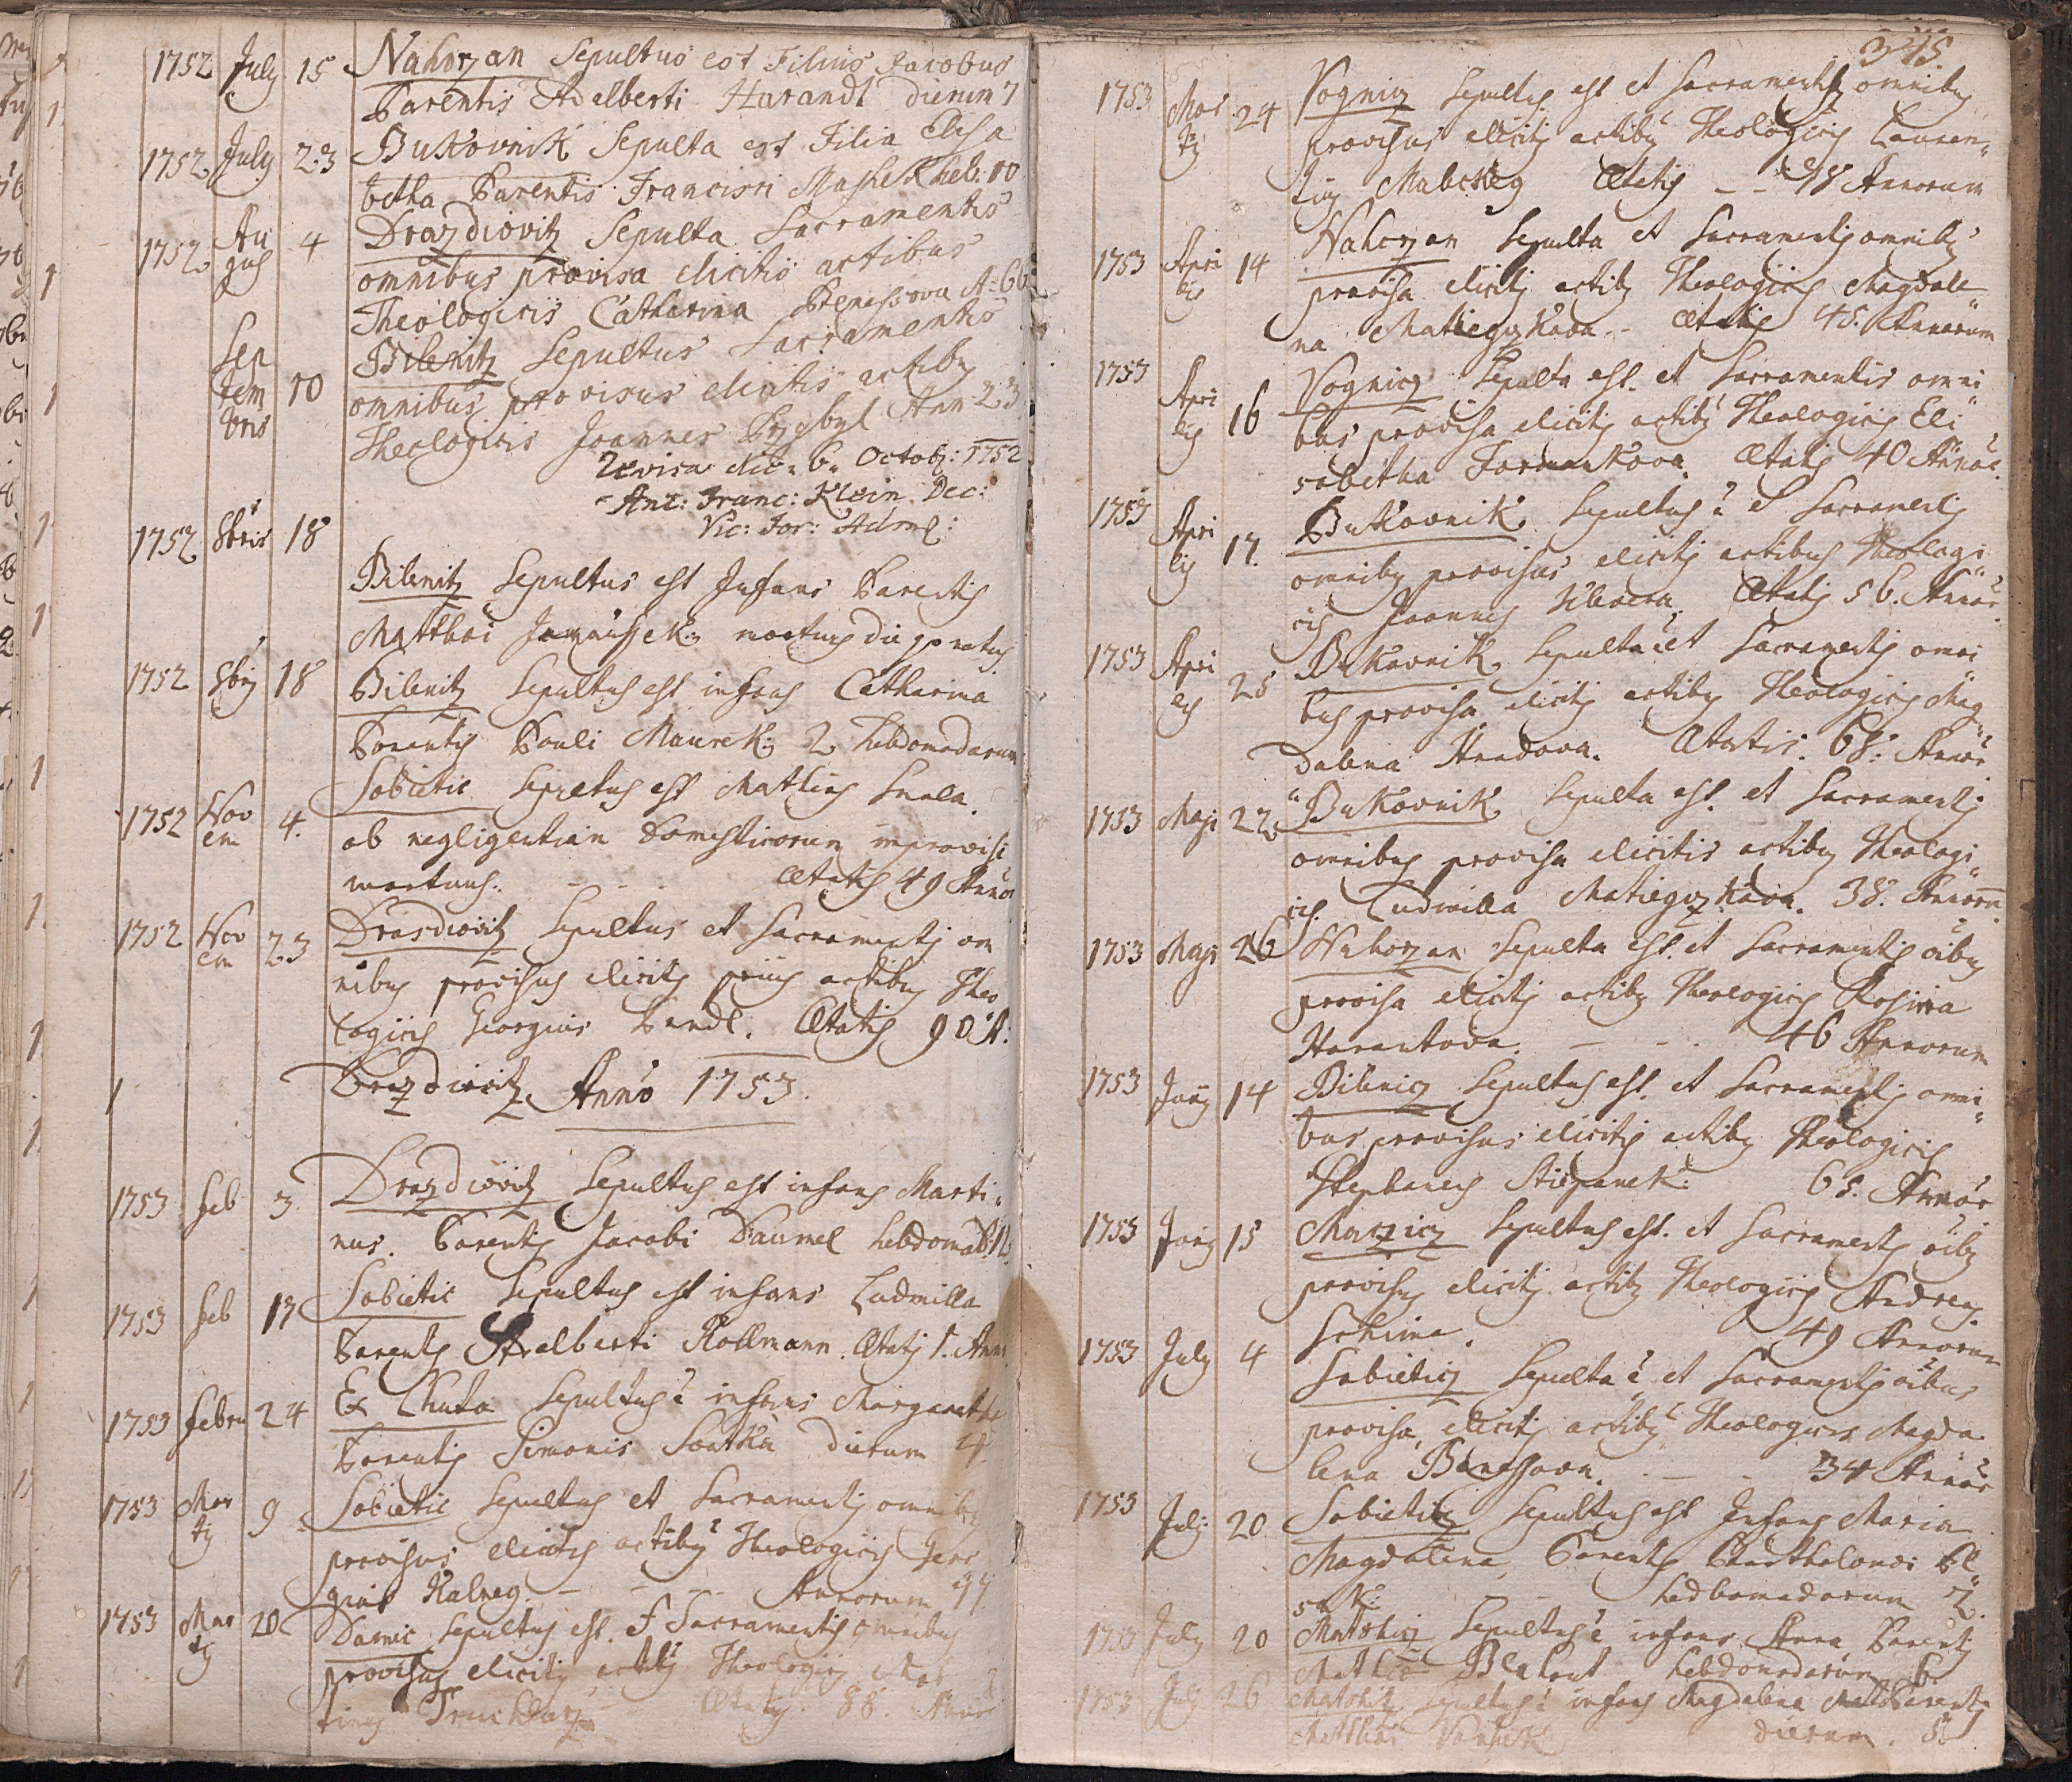 1752 July 15 Nahorzan Sepultus est Filius Jacobus
Parentis Adelberti Harandt dierum 7
1752 July 23 Bukovnik Sepulta est Filia Elisa
betha Parentis Francisci Mashek heb: 10
1752 Au
gus 4 Drazdiovitz Sepulta Sacramentis
omnibus provisa elicitis actibus
Theologicis Catharina A: 66
Sep
tem
bris 10 Bilenitz Sepultus Sacramentis
omnibus provisus elicitis actibq
Theologicis Joannes Przybyl Ann 23
Revisa die 6 Octobr: 1752
Ant: Franc: Klein Dec:
Vic: For:
1752 8bris 18
Bilenitz Sepultus est Infans Parentis
Matthai mortuus die natus
1752 8bris 18 Bilenitz Sepultus est infans Catharina
Parentis Pauli Maurek 2 hebdomadarum
1752 Nov
em 4. Sobietic Sepultus est Mathias
ob negligentiam Domesticorum improvise
mortuus. - - - Ætatis 49 Annor
1752 Nov
em 23 Drasdiovitz Sepultus et Sacramentis om
nibus provisus elicitis priis actibus Theo
logicis Georgius Ætatis 90 A:
Drazdiovitz Anno 1753.
1753 feb 3 Drazdiovitz Sepultus est infans Marti
nus. Parentis Jacobi Daumel hebdomad
1753 feb 17 Sobietic Sepultus est infans Ludmilla
Parentis Adalberti Kollmann. Ætatis 1. Anni
1753 febru 24 Ex Lhuta Sepultus ē infans Margaretha
Parentis Simonis Swatka dierum 4
1753 Mar
tij 9 Sobietic Sepultus et Sacramentis omnibus
provisus elicitis actibus Theologicis Geor
gius Kalney. - - - Annorum
1753 Mar
tij 20 Damic Sepultus est. et Sacramentis omnibus
provisus elicitis actibus Theologicis Mar
tinus Ætatis 88. Annor
345.
1753 Mar
tij 24 Vognicz Sepultus est et Sacramentis omnibus
provisus elicitis actibus Theologicis Lauren
tius Ætatis - - 98 Annorum
1753 Apri
lis 14 Nahorzan Sepulta et Sacramentis omnibus
provisa elicitis actibus Theologicis Magdale
na Matiegzkova - Ætatis 45. Annorum
1753 Apri
lis 16 Vognicz Sepulta est. et Sacramentis omni
bus provisa elicitis actibus Theologicis Eli
sabetha Formankova. Ætatis 40 Annor
1753 Apri
lis 17. Bukovnik Sepultus ē et Sacramentis
omnibus provisus elicitis actibus Theologi
cis Joannes Ætatis 56. Annor
1753 Apri
lis 25 Bukovnik Sepulta ē et Sacramentis omni
bus provisa elicitis actibus Theologicis Mag
dalena Ætatis. 68: Annor
1753 Maji 22 Bukovnik Sepulta est. et Sacramentis
omnibus provisa elicitis actibus Theologi
cis. Ludmilla Matiegzkova. 38. Annorum
1753 Maji 26 Nahorzan Sepulta est. et Sacramentis oibus
provisa elicitis actibus Theologicis Rosina
Harantova. - - - 46 Annorum
1753 Junij 14 Bilenicz Sepultus est. et Sacramentis omni
bus provisus elicitis actibus Theologicis
Stephanus Stiepanek 68. Annor
1753 Junij 15 Sepultus est. et Sacramentis oibus
provisus elicitis actibus Theologicis Andreas
Schima. 49 Annorum
1753 July 4 Sobieticz Sepulta ē et Sacramentis oibus
provisa elicitis actibus Theologicis Magda
lena Beneschova. - - 34 Annor
1753 Julij 20 Sobieticz Sepultus est Infans Maria
Magdalena Parentis Bartholomei
hedbomadarum 7.
1753 July 20 Matshicz Sepultus ē infans Anna Parentis
Mathiae Blahout hebdomadarum 6
1753 July 26 Matshitz Sepultus ē infans Magdalena Parentis
Matthai dierum. 8.